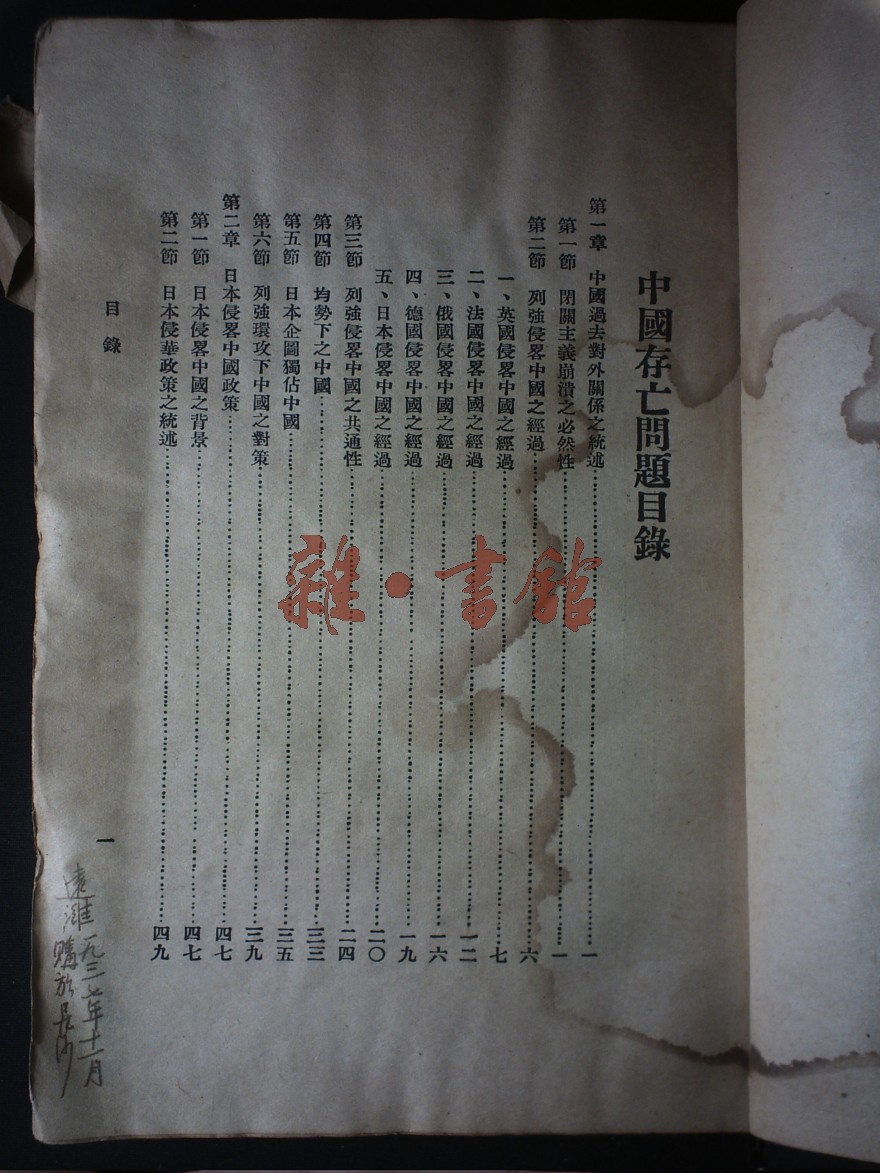 中國存亡問題目錄
第一章　中國過去對外關係之統述……一
第一節　閉關主義崩潰之必然性……一
第二節　列強侵畧中國之經過……六
一、英國侵畧中國之經過……七
二、法國侵畧中國之經過……一二
三、俄國侵畧中國之經過……一六
四、德國侵畧中國之經過……一九
五、日本侵畧中國之經過……二〇
第三節　列強侵畧中國之共通性……二四
第四節　均勢下之中國……三三
第五節　日本企圖獨佔中國……三五
第六節　列強環攻下中國之對策……三九
第二章　日本侵畧中國政策……四七
第一節　日本侵畧中國之背景……四七
第二節　日本侵華政策之統述……四九
目錄
一
一九三七年十一月
購於長沙
雜·書館